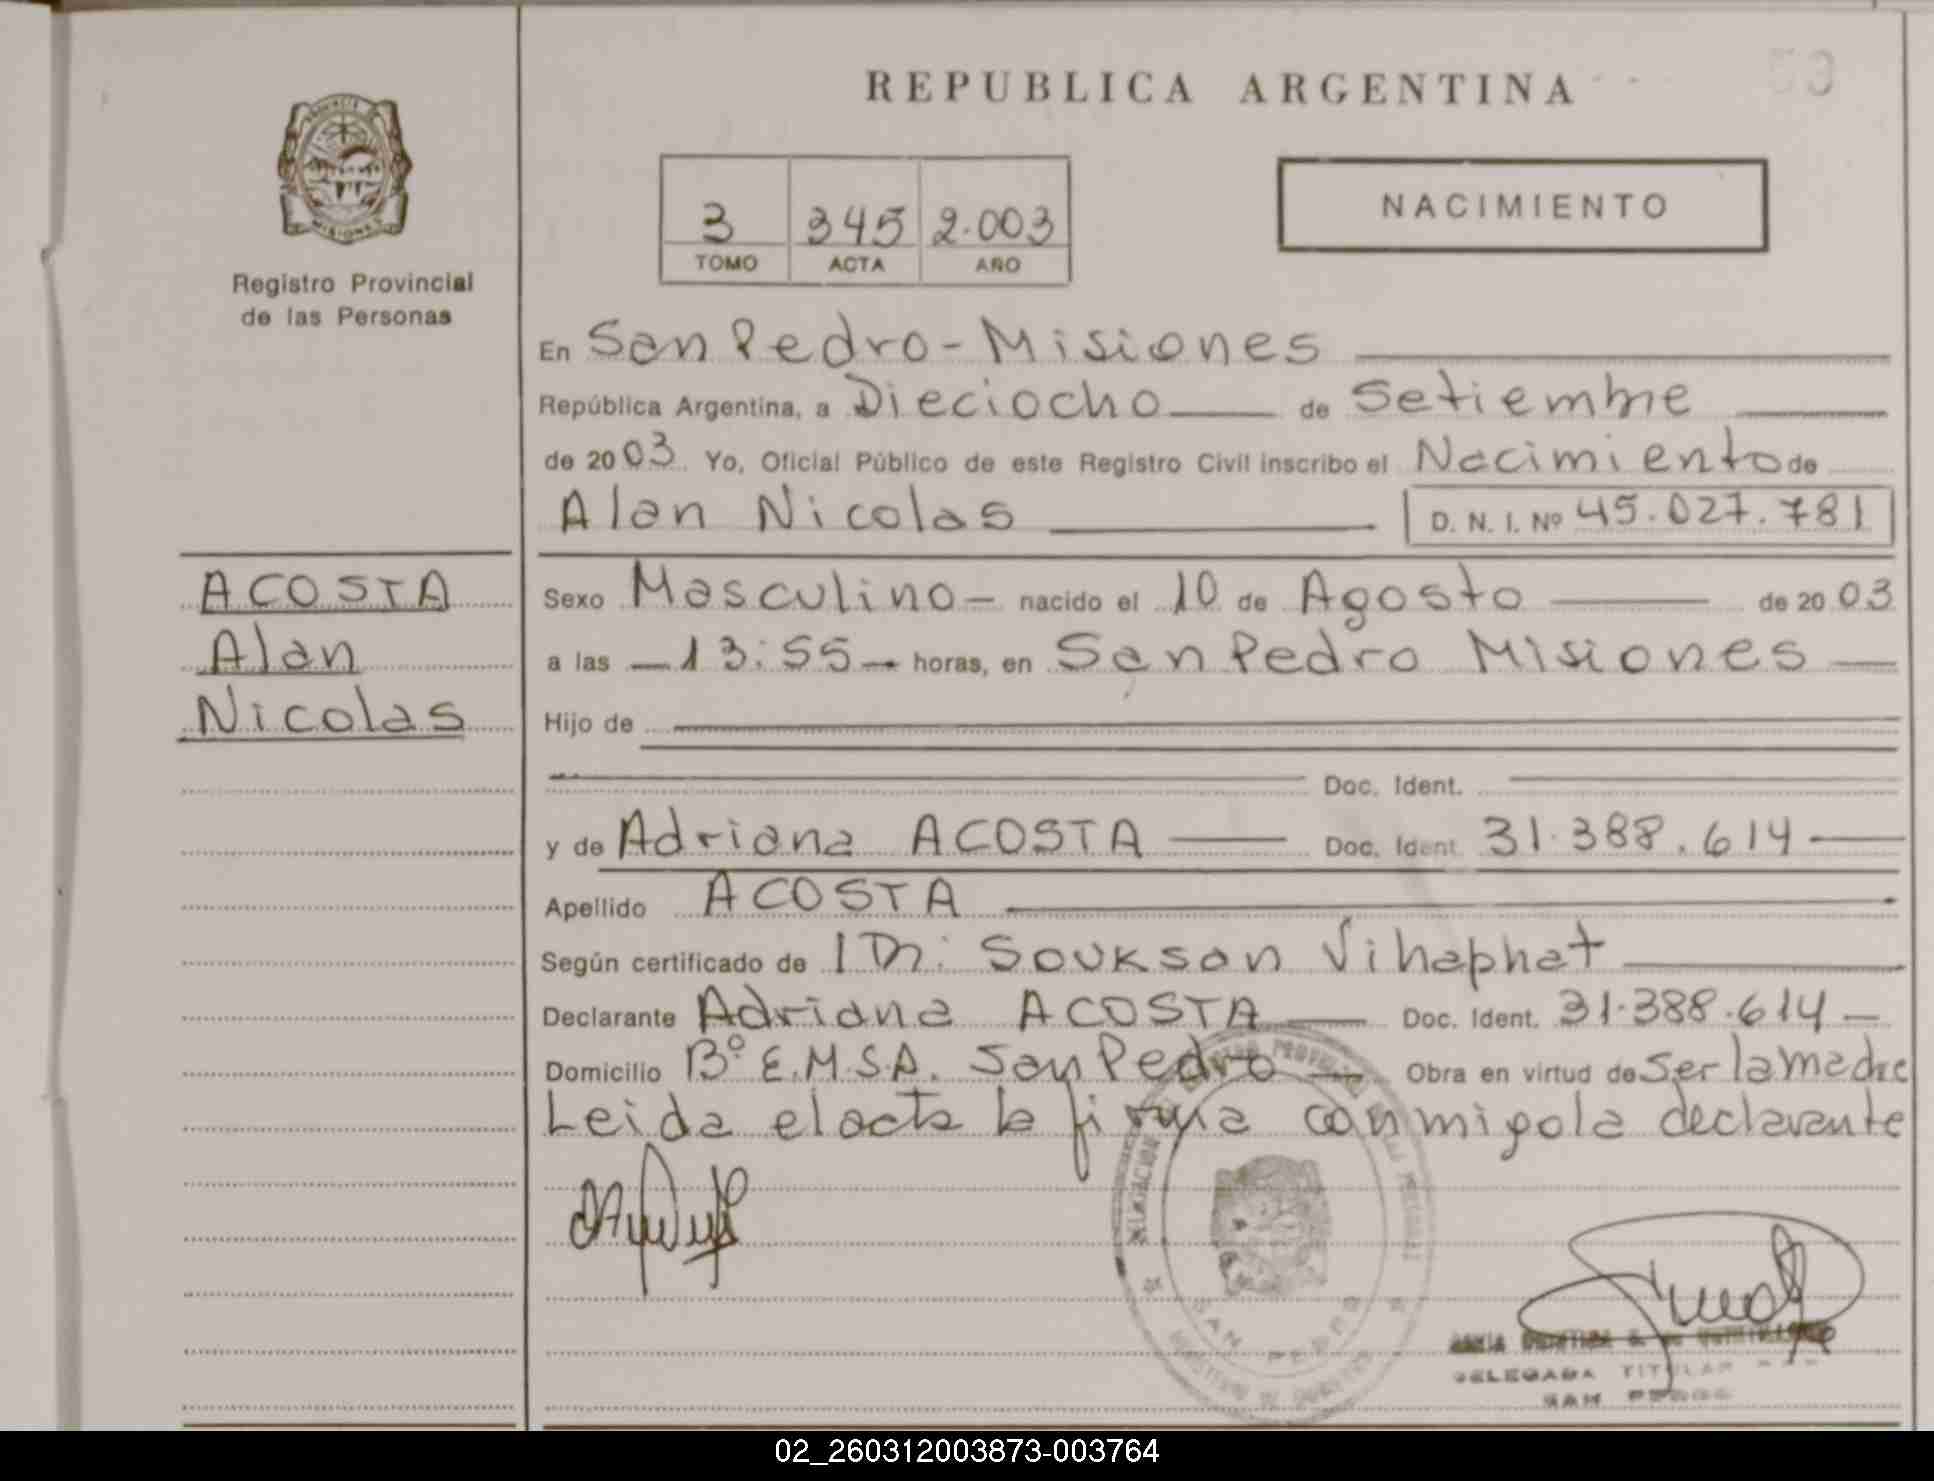 REPUBLICA ARGENTINA
PROVINCIA DE
MISIONES
Registro Provincial
de las Personas
3 345 2.003
TOMO ACTA AÑO
NACIMIENTO
En San Pedro - Misiones
República Argentina, a Dieciocho de Setiembre
de 2003 Yo, Oficial Público de este Registro Civil inscribo el Nacimiento de
Alan Nicolas D. N. I. Nº 45.027.781
ACOSTA
Alan
Nicolas
Sexo Masculino - nacido el 10 de Agosto de 2003
a las 13:55 horas, en San Pedro Misiones
Hijo de
Doc. Ident.
y de Adriana ACOSTA Doc. Ident. 31.388.614
Apellido ACOSTA
Según certificado de Souksan Vihaphat
Declarante Adriana ACOSTA Doc. Ident. 31.388.614
Domicilio Bº E.M.S.A. San Pedro Obra en virtud de ser la madre
Leida el acta la firma conmigo la declarante
SAN PEDRO
DELEGADA TITULAR
SAN PEDRO
02_260312003873-003764